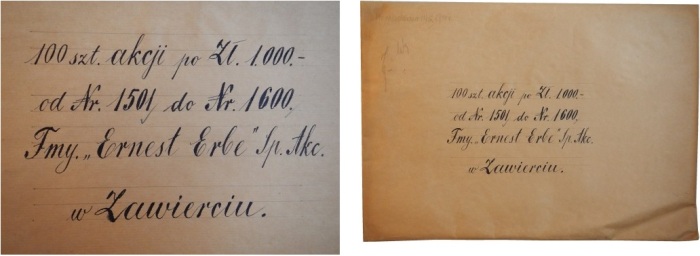 100 szt. akcji po Zł. 1.000.-
od Nr. 1501, do Nr. 1600,
Fmy. „Ernest Erbe" Sp. Akc.
w Zawierciu.
100 szt. akcji po Zł. 1000.-
od Nr. 1501, do Nr. 1600,
Fmy. „Ernest Erbe" Sp. Akc.
w Zawierciu.